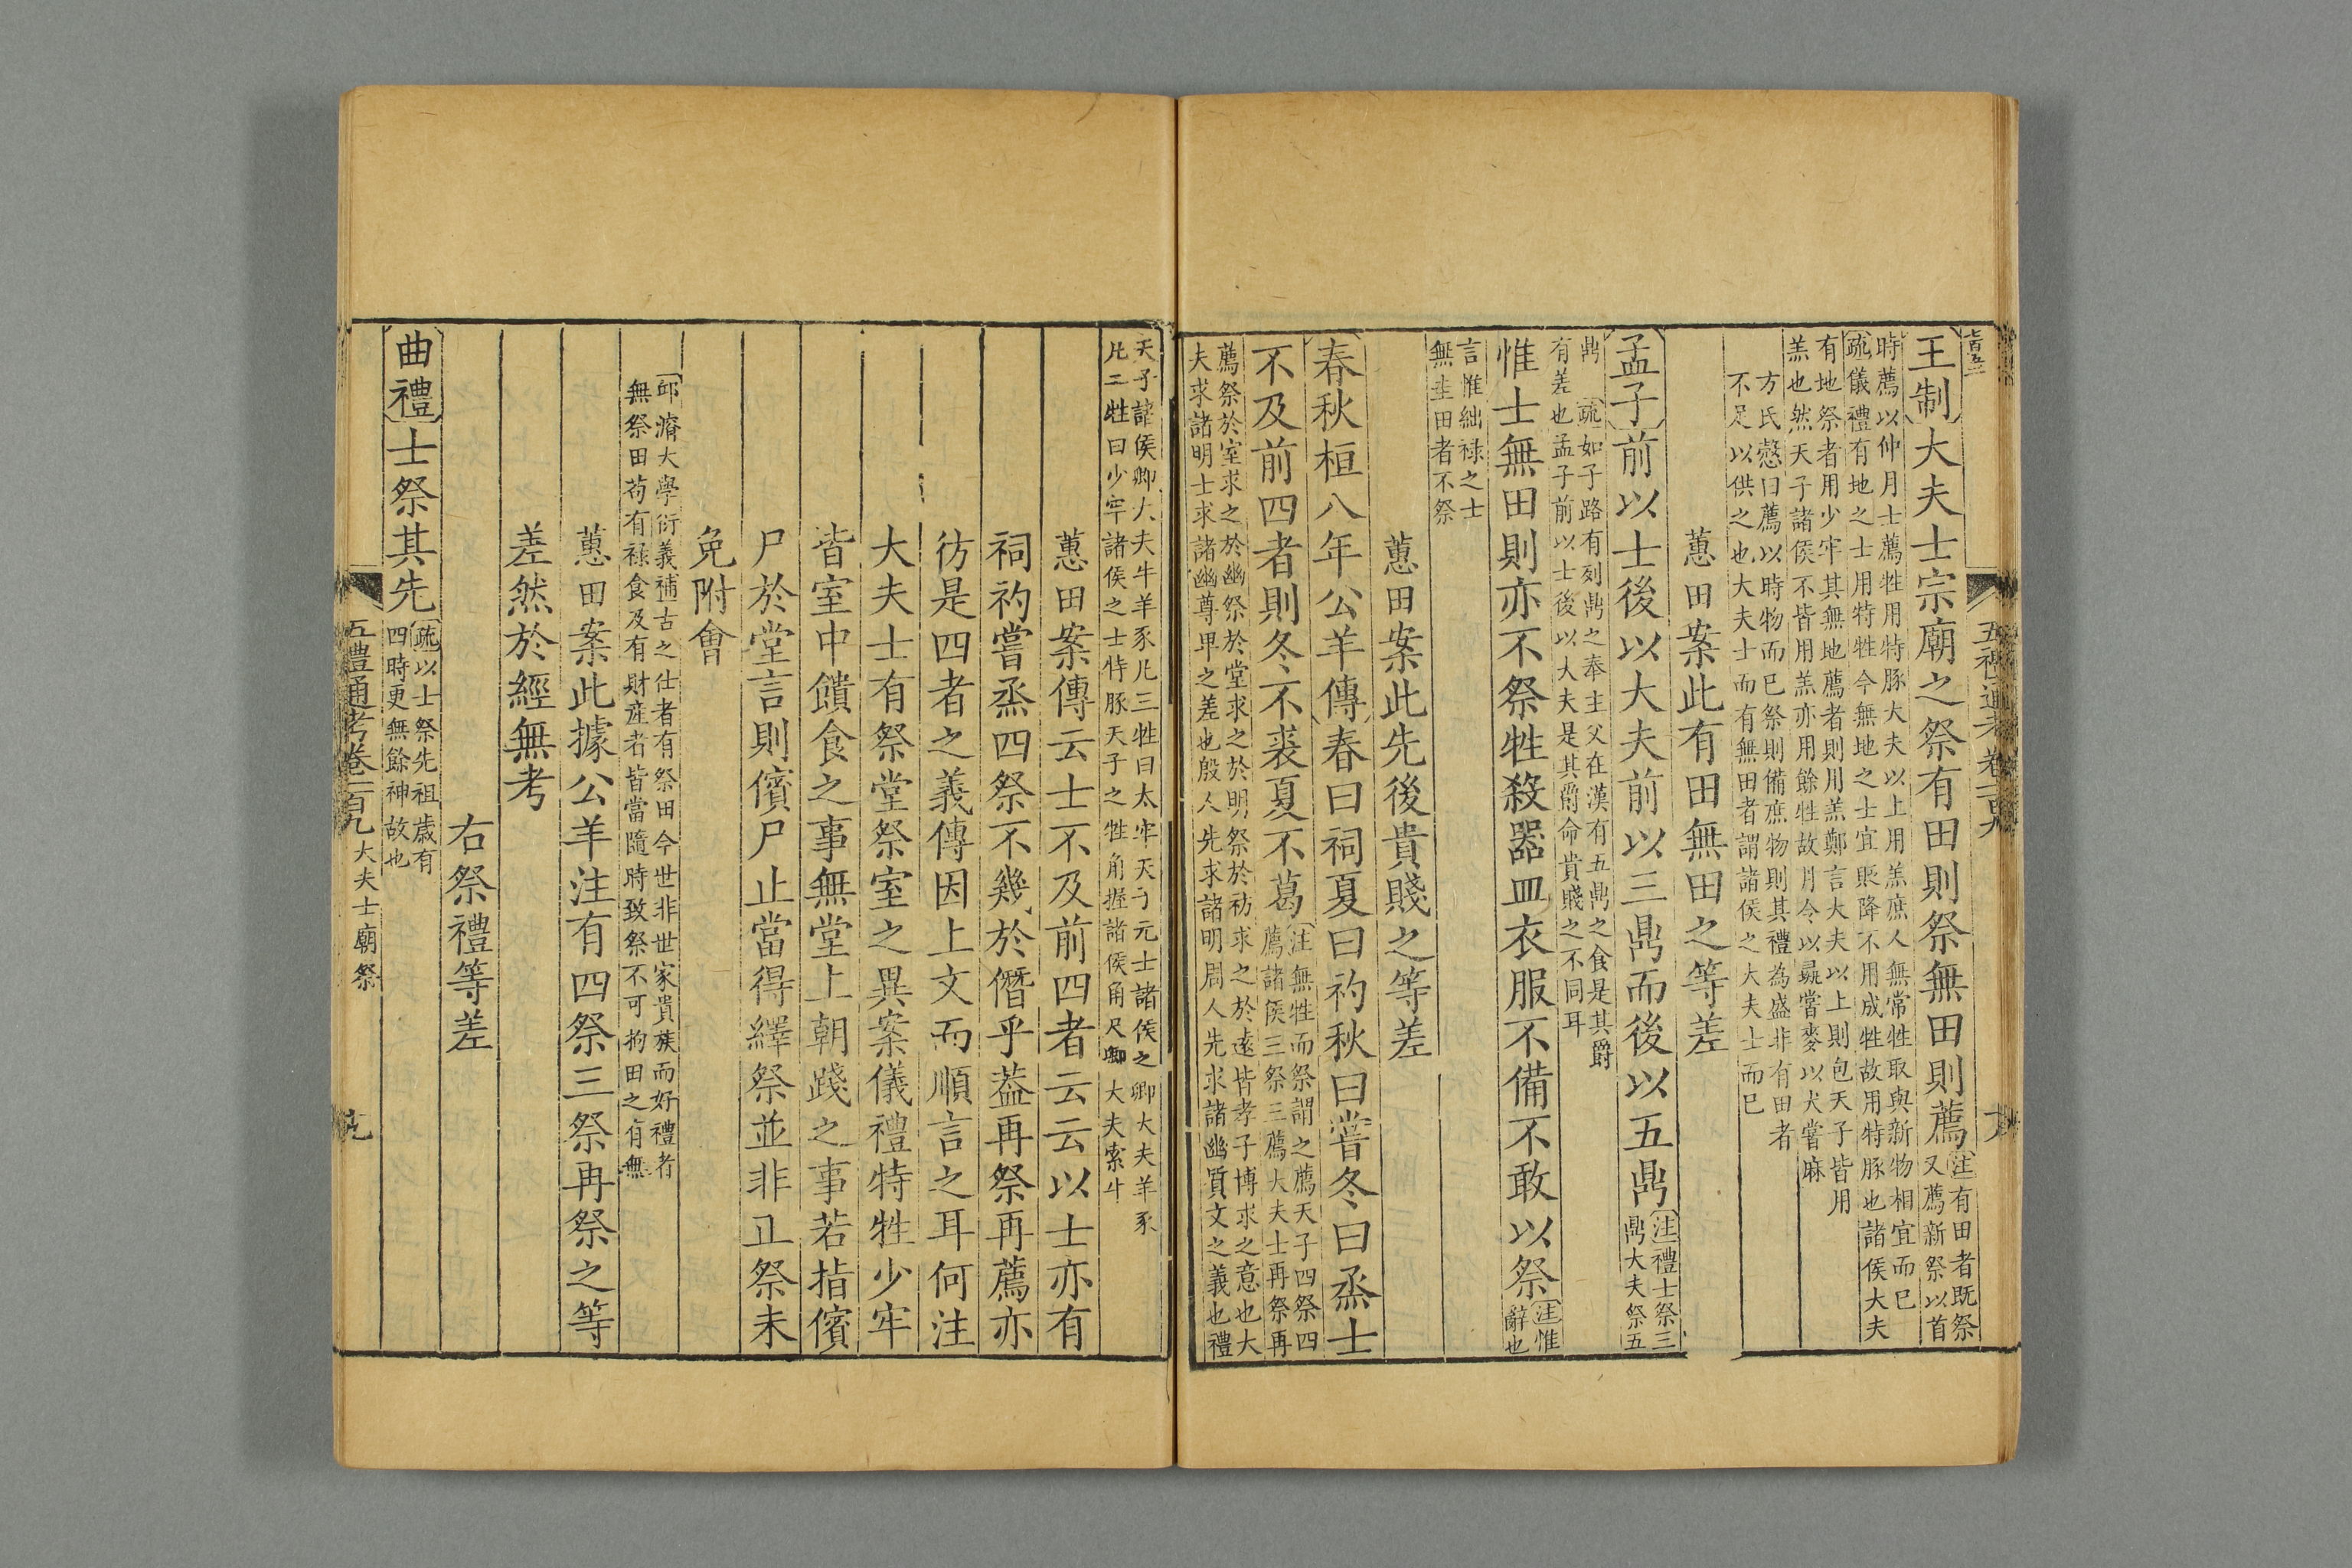 七百五二
王制大夫士宗廟之祭有田則祭無田則薦
注有田者既祭
又薦新祭以首
時薦以仲月士薦牲用特豚大夫以上用羔庶人無常牲取與新物相宜而已
疏儀禮有地之士用特牲今無地之士宜貶降不用成牲故用特豚也諸侯大夫
有地祭者用少牢其無地薦者則用羔鄭言大夫以上則包天子皆用
羔也然天子諸侯不皆用羔亦用餘牲故月令以彘嘗麥以犬嘗麻
方氏慤曰薦以時物而已祭則備庶物則其禮為盛非有田者
不足以供之也大夫士而有無田者謂諸侯之大夫士而已
蕙田案此有田無田之等差
孟子前以士後以大夫前以三鼎而後以五鼎
注禮士祭三
鼎大夫祭五
鼎疏如子路有列鼎之奉主父在漢有五鼎之食是其爵
有差也孟子前以士後以大夫是其爵命貴賤之不同耳
惟士無田則亦不祭牲殺器皿衣服不備不敢以祭
注惟
辭也
言惟絀祿之士
無圭田者不祭
蕙田案此先後貴賤之等差
春秋桓八年公羊傳春曰祠夏曰礿秋曰嘗冬曰烝士
不及前四者則冬不裘夏不葛
注無牲而祭謂之薦天子四祭四
薦諸侯三祭三薦大夫士再祭再
薦祭於室求之於幽祭於堂求之於明祭於祊求之於遠皆孝子博求之意也大
夫求諸明士求諸幽尊卑之差也殷人先求諸明周人先求諸幽質文之義也禮
五禮通考卷一百九
大
天子諸侯卿大夫牛羊豕凡三牲曰太牢天子元士諸侯之卿大夫羊豕
凡二牲曰少牢諸侯之士特豚天子之牲角握諸侯角尺卿大夫索牛
蕙田案傳云士不及前四者云云以士亦有
祠礿嘗烝四祭不幾於僭乎葢再祭再薦亦
彷是四者之義傳因上文而順言之耳何注
大夫士有祭堂祭室之異案儀禮特牲少牢
皆室中饋食之事無堂上朝踐之事若指儐
尸於堂言則儐尸止當得繹祭並非正祭未
免附會
邱濬大學衍義補古之仕者有祭田今世非世家貴族而好禮者
無祭田苟有祿食及有財産者皆當隨時致祭不可拘田之有無
蕙田案此據公羊注有四祭三祭再祭之等
差然於經無考
右祭禮等差
曲禮士祭其先
疏以士祭先祖歲有
四時更無餘神故也
五禮通考卷一百九 大夫士廟祭